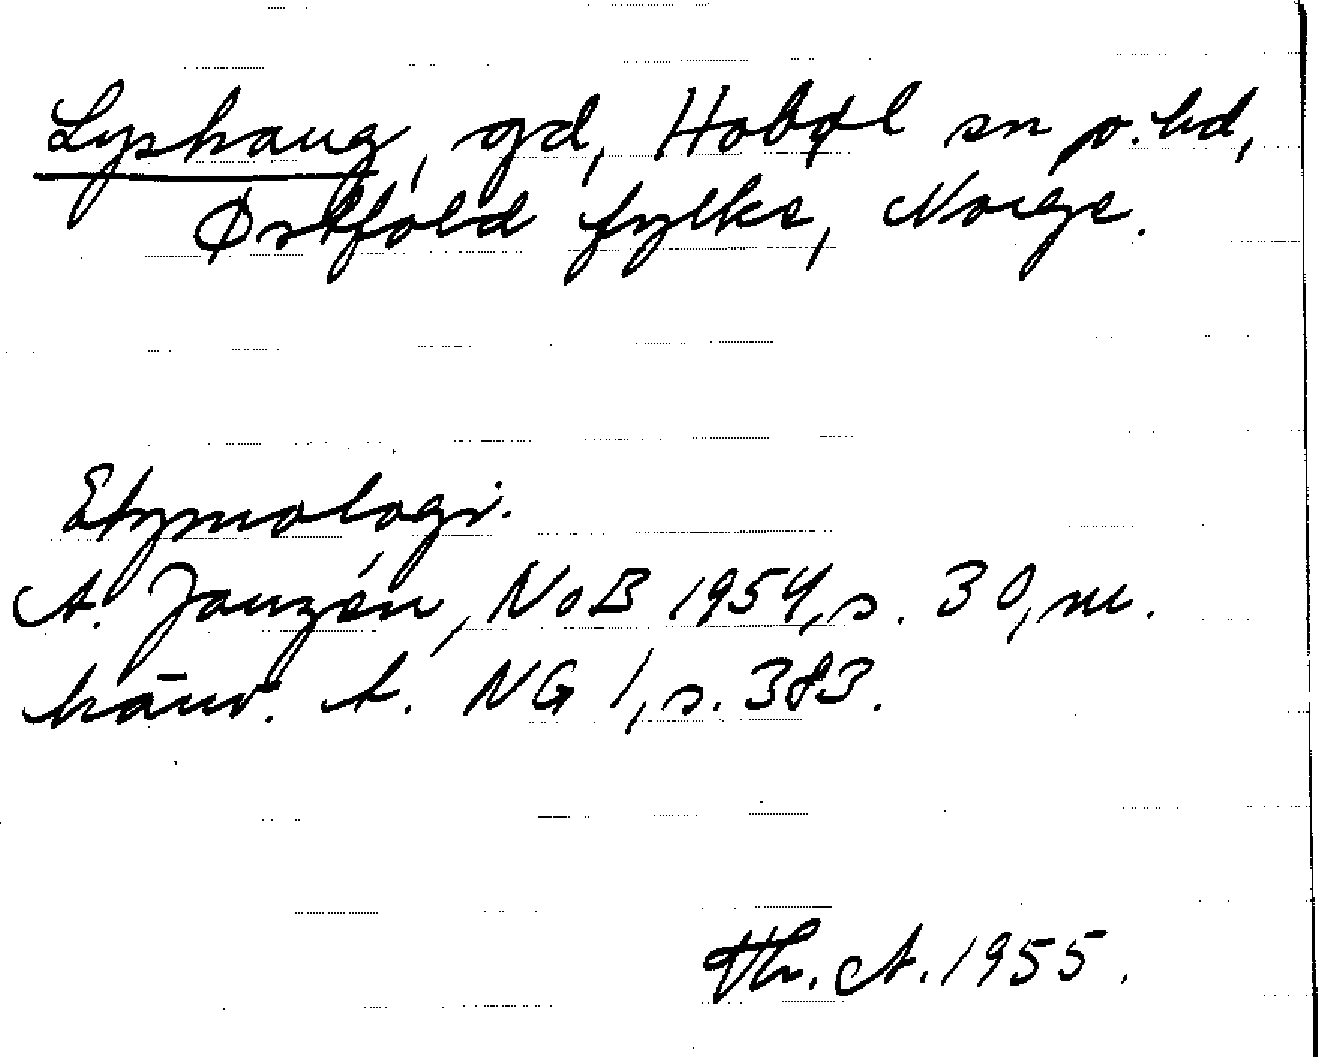 Lyshaug, gd, Hobøl sn o. hd,
Østfold fylke, Norge.
Etymologi.
A. Janzén, NoB 1954, s. 30, m.
hänv. t. NG 1, s. 383.
Th. A. 1955.